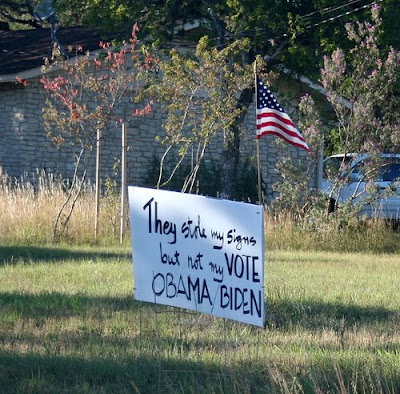 They stole my signs
but not my VOTE
OBAMA/BIDEN